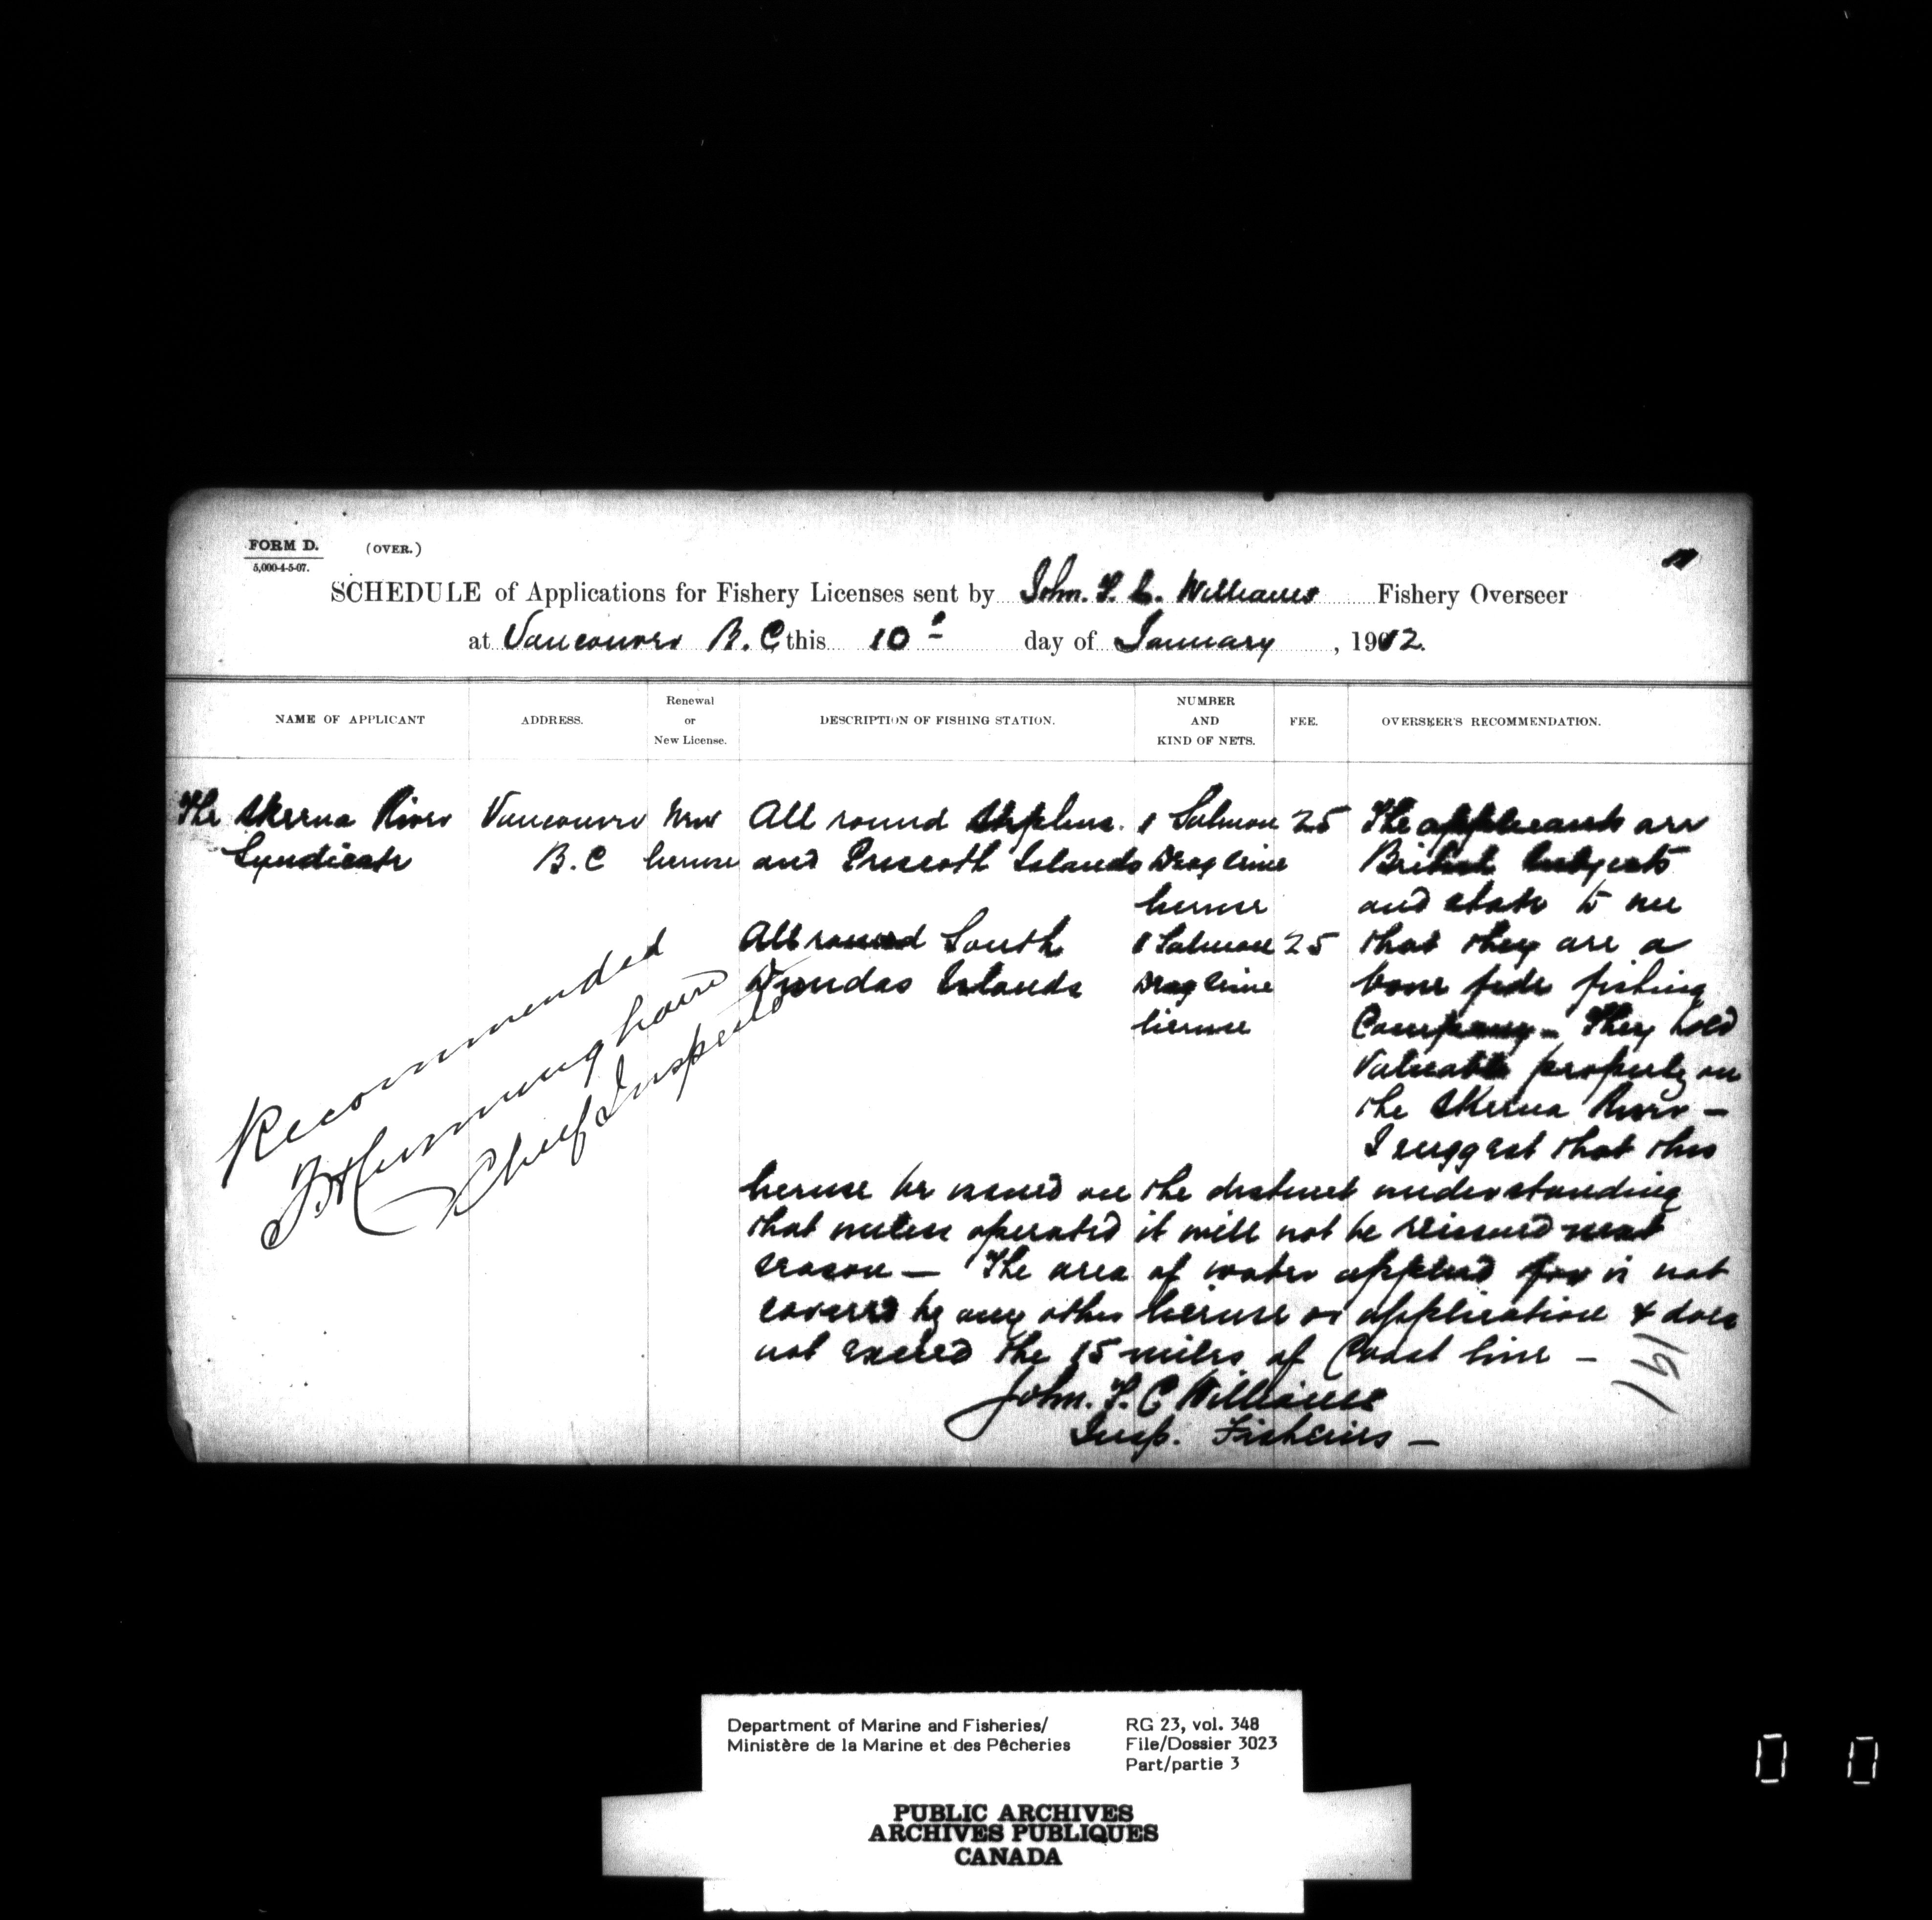 FORM D. (OVER.)
5,000-4-5-07.
SCHEDULE of Applications for Fishery Licenses sent by John. F. C. Williams Fishery Overseer
at Vancouver B.C this 10th day of January, 1912.
NAME OF APPLICANT
ADDRESS.
Renewal
or
New License.
DESCRIPTION OF FISHING STATION.
NUMBER
AND
KIND OF NETS.
FEE.
OVERSEER'S RECOMMENDATION.
The Skeena River
Syndicate
Vancouver
B.C
New
license
All round Stephens.
and Prescott Islands
1 Salmon
Drag Seine
license
25
All round South
Dundas Islands
1 Salmon
Drag Seine
license
25
The applicants are
British Subjects
and state to me
that they are a
bone fide fishing
Company - They hold
Valuable property on
the Skeena River -
I suggest that this
license be issued on the distinct understanding
that unless operated it will not be reissued next
season - The area of water applied for is not
covered by any other license or application & does
not exceed the 15 miles of Coast line -
John. F. C Williams
Insp. Fisheries -
Recommended
Chief Inspector
191
Department of Marine and Fisheries/
Ministère de la Marine et des Pêcheries
RG 23, vol. 348
File/Dossier 3023
Part/partie 3
PUBLIC ARCHIVES
ARCHIVES PUBLIQUES
CANADA
0 0